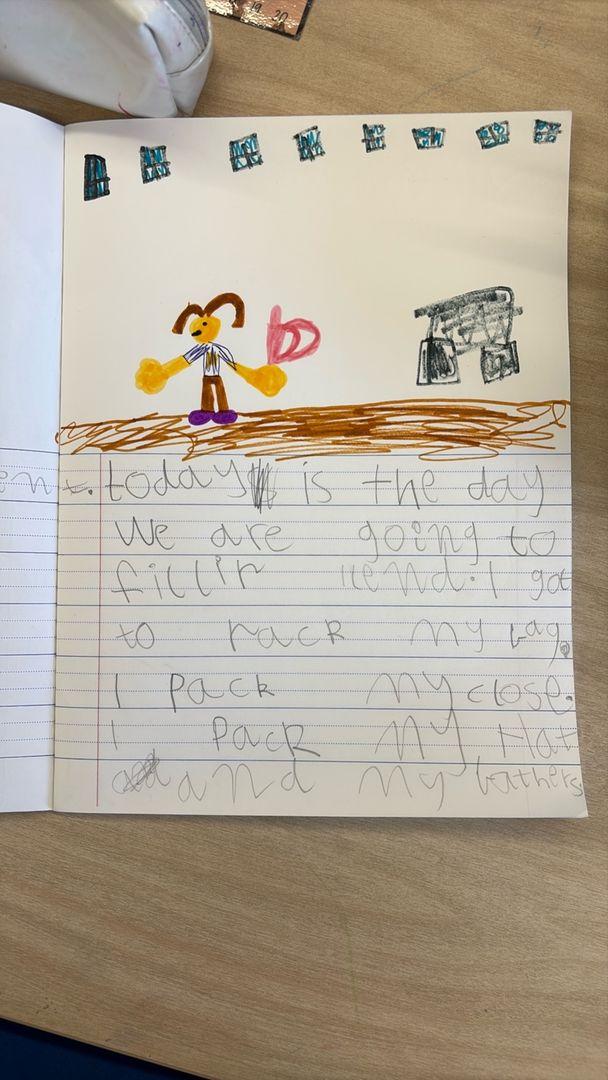 19 20
ent.
today is the day
We are going to
fillir I got
to rack my bag.
I Pack my close.
I Pack My Hat
and My bathers